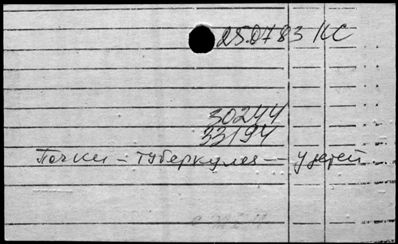 25.07.83 КС
30244
33194
Почки – туберкулез – у детей